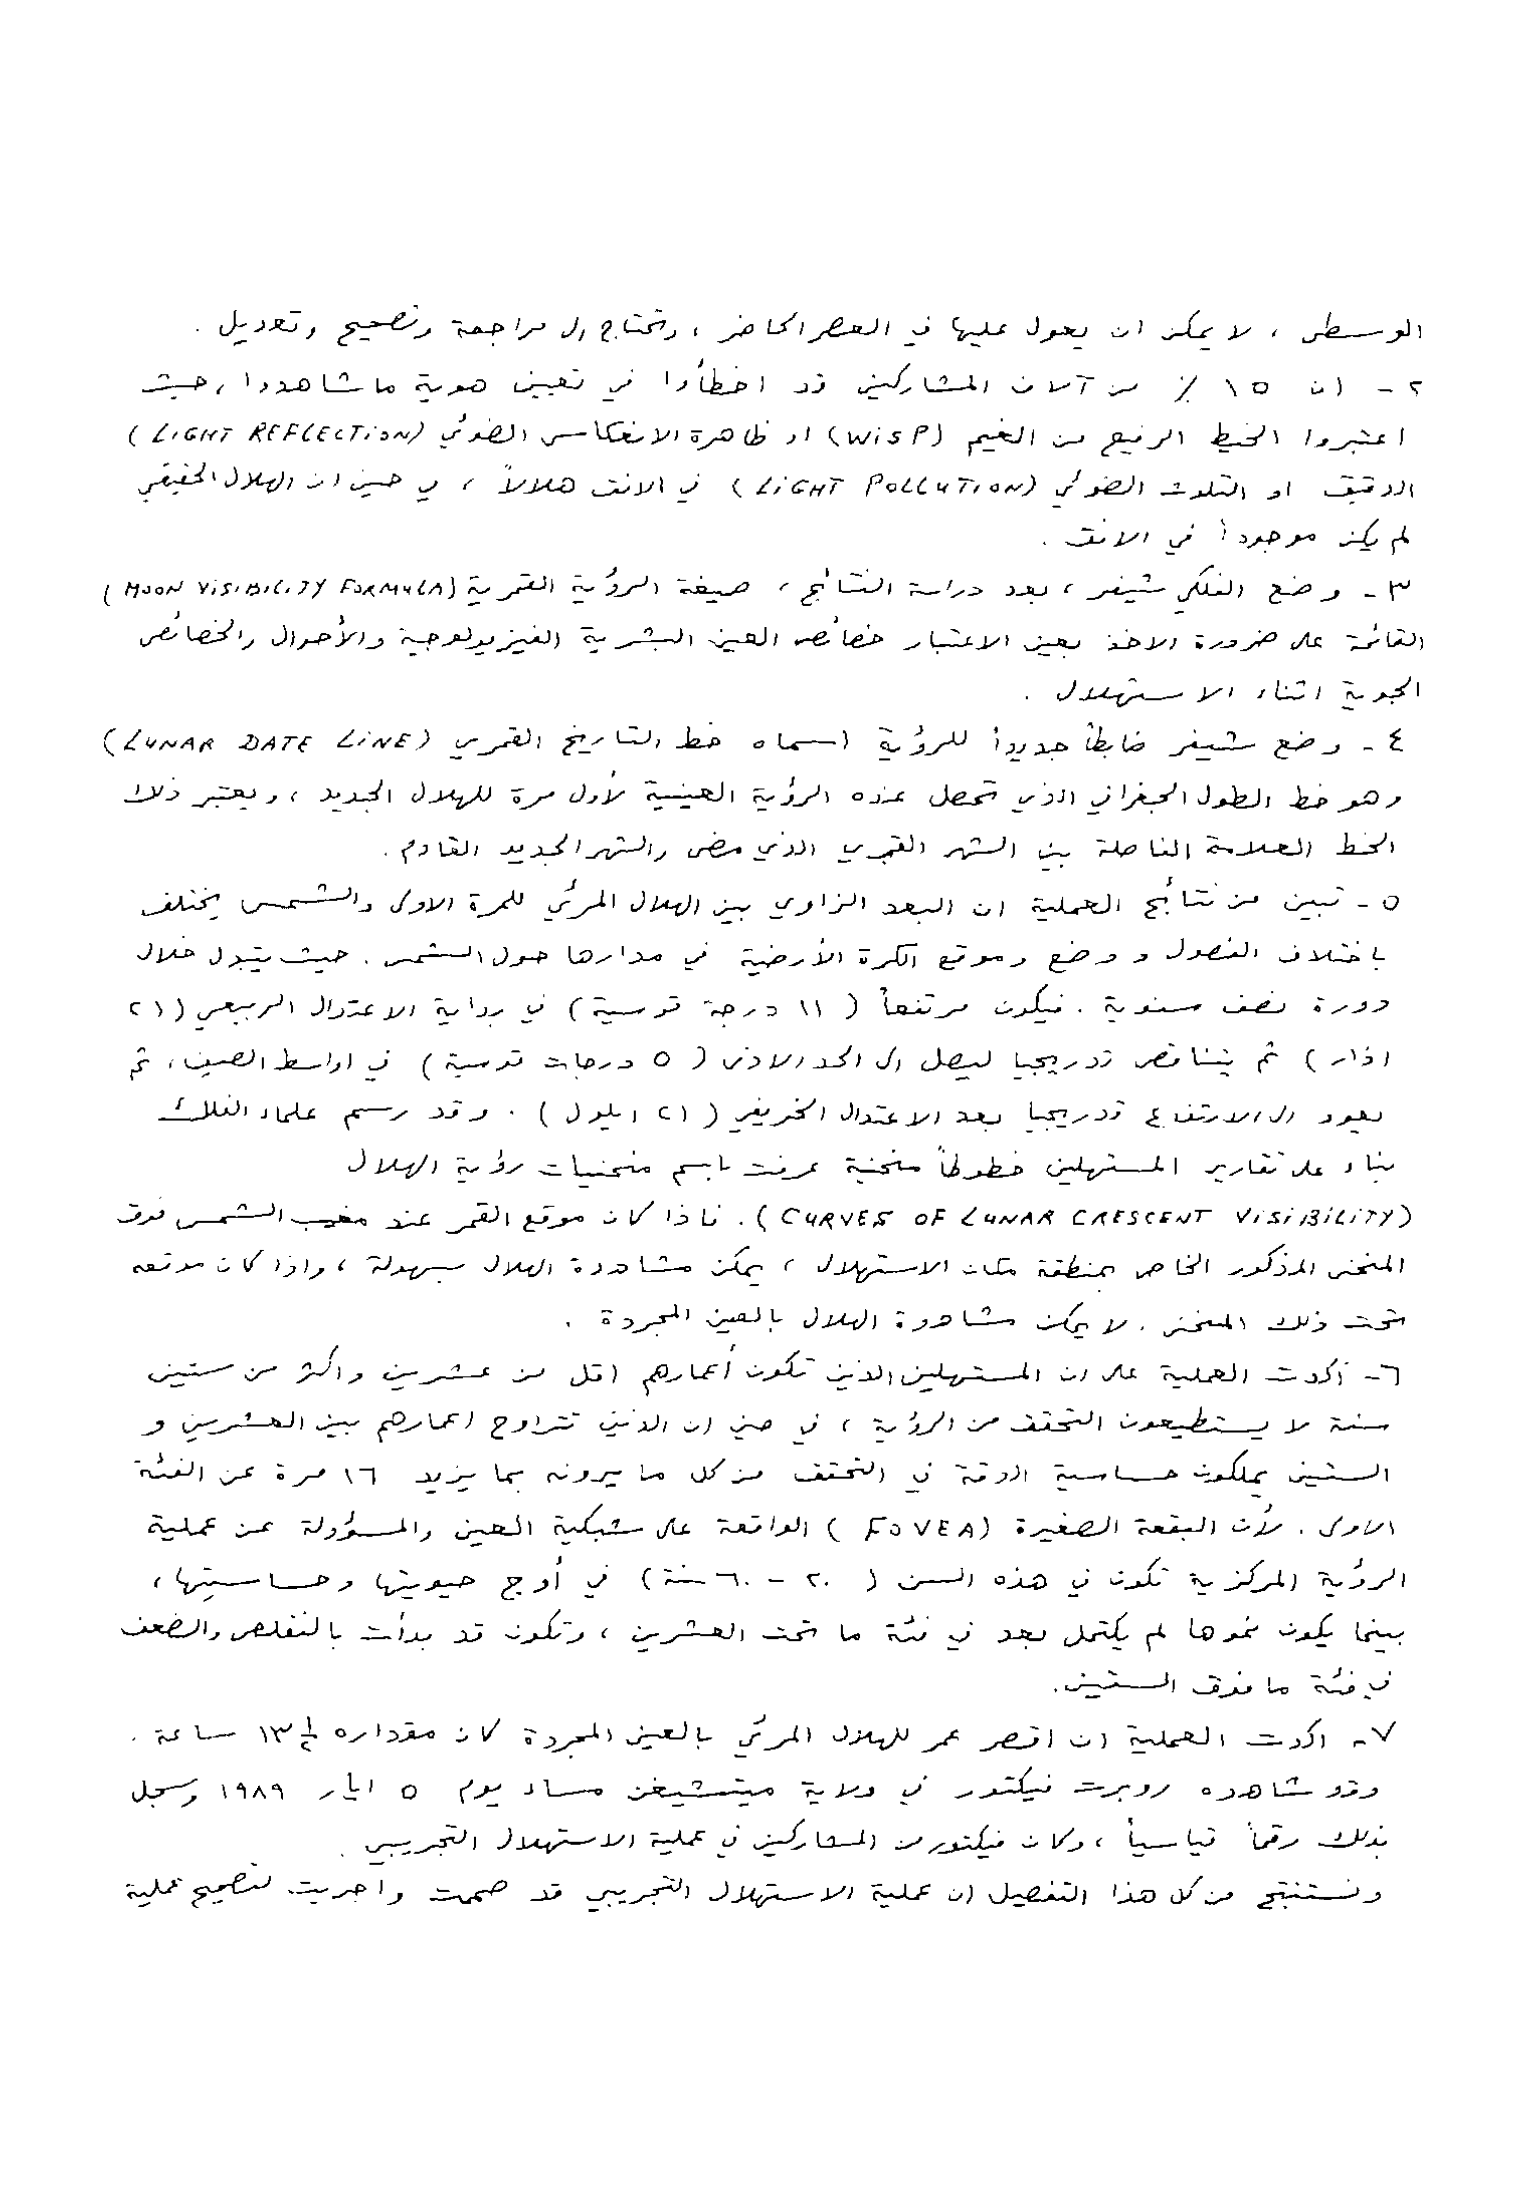 الوسطى ، لا يمكن ان يعول عليها في العصر الحاضر ، وتحتاج الى مراجعة وتصحيح وتعديل .
٢ - ان ١٥ ٪ من آلاف المشاركين قد اخطأوا في تعيين هوية ما شاهدوا ، حيث
اعتبروا الخيط الرفيع من الغيم (WISP) او ظاهرة الانعكاس الضوئي (LIGHT REFLECTION)
الدقيق او التلوث الضوئي (LIGHT POLLUTION) في الافق هلالاً ، في حين ان الهلال الحقيقي
لم يكن موجوداً في الافق .
٣ - وضع الفلكي شيفر ، بعد دراسة النتائج ، صيغة الرؤية القمرية (MOON VISIBILITY FORMULA)
القائمة على ضرورة الاخذ بعين الاعتبار خصائص العين البشرية الفيزيولوجية والأحوال والخصائص
الجوية اثناء الاستهلال .
٤ - وضع شيفر ضابطاً جديداً للرؤية اسماه خط التاريخ القمري (LUNAR DATE LINE)
وهو خط الطول الجغرافي الذي تحصل عنده الرؤية العينية لأول مرة للهلال الجديد ، ويعتبر ذلك
الخط العلامة الفاصلة بين الشهر القمري الذي مضى والشهر الجديد القادم .
٥ - تبين من نتائج العملية ان البعد الزاوي بين الهلال المرئي للمرة الاولى والشمس يختلف
باختلاف الفصول ووضع وموقع الكرة الأرضية في مدارها حول الشمس . حيث يتبدل خلال
دورة نصف سنوية . فيكون مرتفعاً ( ١١ درجة قوسية ) في بداية الاعتدال الربيعي ( ٢١
اذار ) ثم يتناقص تدريجيا ليصل الى الحد الادنى ( ٥ درجات قوسية ) في اواسط الصيف ، ثم
يعود الى الارتفاع تدريجيا بعد الاعتدال الخريفي ( ٢١ ايلول ) . وقد رسم علماء الفلك
بناء على تقارير المستهلين خطوطاً منحنية عرفت باسم منحنيات رؤية الهلال
(CURVES OF LUNAR CRESCENT VISIBILITY) . فاذا كان موقع القمر عند مغيب الشمس فوق
المنحنى المذكور الخاص بمنطقة مكان الاستهلال ، يمكن مشاهدة الهلال بسهولة ، واذا كان موقعه
تحت ذلك المنحنى . لا يمكن مشاهدة الهلال بالعين المجردة .
٦ - أكدت العملية على ان المستهلين الذين تكون أعمارهم اقل من عشرين واكثر من ستين
سنة لا يستطيعون التحقق من الرؤية ، في حين ان الذين تتراوح اعمارهم بين العشرين و
الستين يملكون حساسية الدقة في التحقق من كل ما يرونه بما يزيد ١٦ مرة عن الفئة
الاولى . لأن البقعة الصغيرة (FOVEA) الواقعة على شبكية العين والمسؤولة عن عملية
الرؤية المركزية تكون في هذه السن ( ٢٠ - ٦٠ سنة ) في أوج حيويتها وحساسيتها ،
بينما يكون نموها لم يكتمل بعد في فئة ما تحت العشرين ، وتكون قد بدأت بالتقلص والضعف
في فئة ما فوق الستين .
٧ - اكدت العملية ان اقصر عمر للهلال المرئي بالعين المجردة كان مقداره ١٣ ١/٢ ساعة .
وقد شاهده روبرت فيكتور في ولاية ميتشيغن مساء يوم ٥ ايار ١٩٨٩ وسجل
بذلك رقماً قياسياً ، وكان فيكتور من المشاركين في عملية الاستهلال التجريبي .
ونستنتج من كل هذا التفصيل ان عملية الاستهلال التجريبي قد صممت واجريت لتصحيح عملية